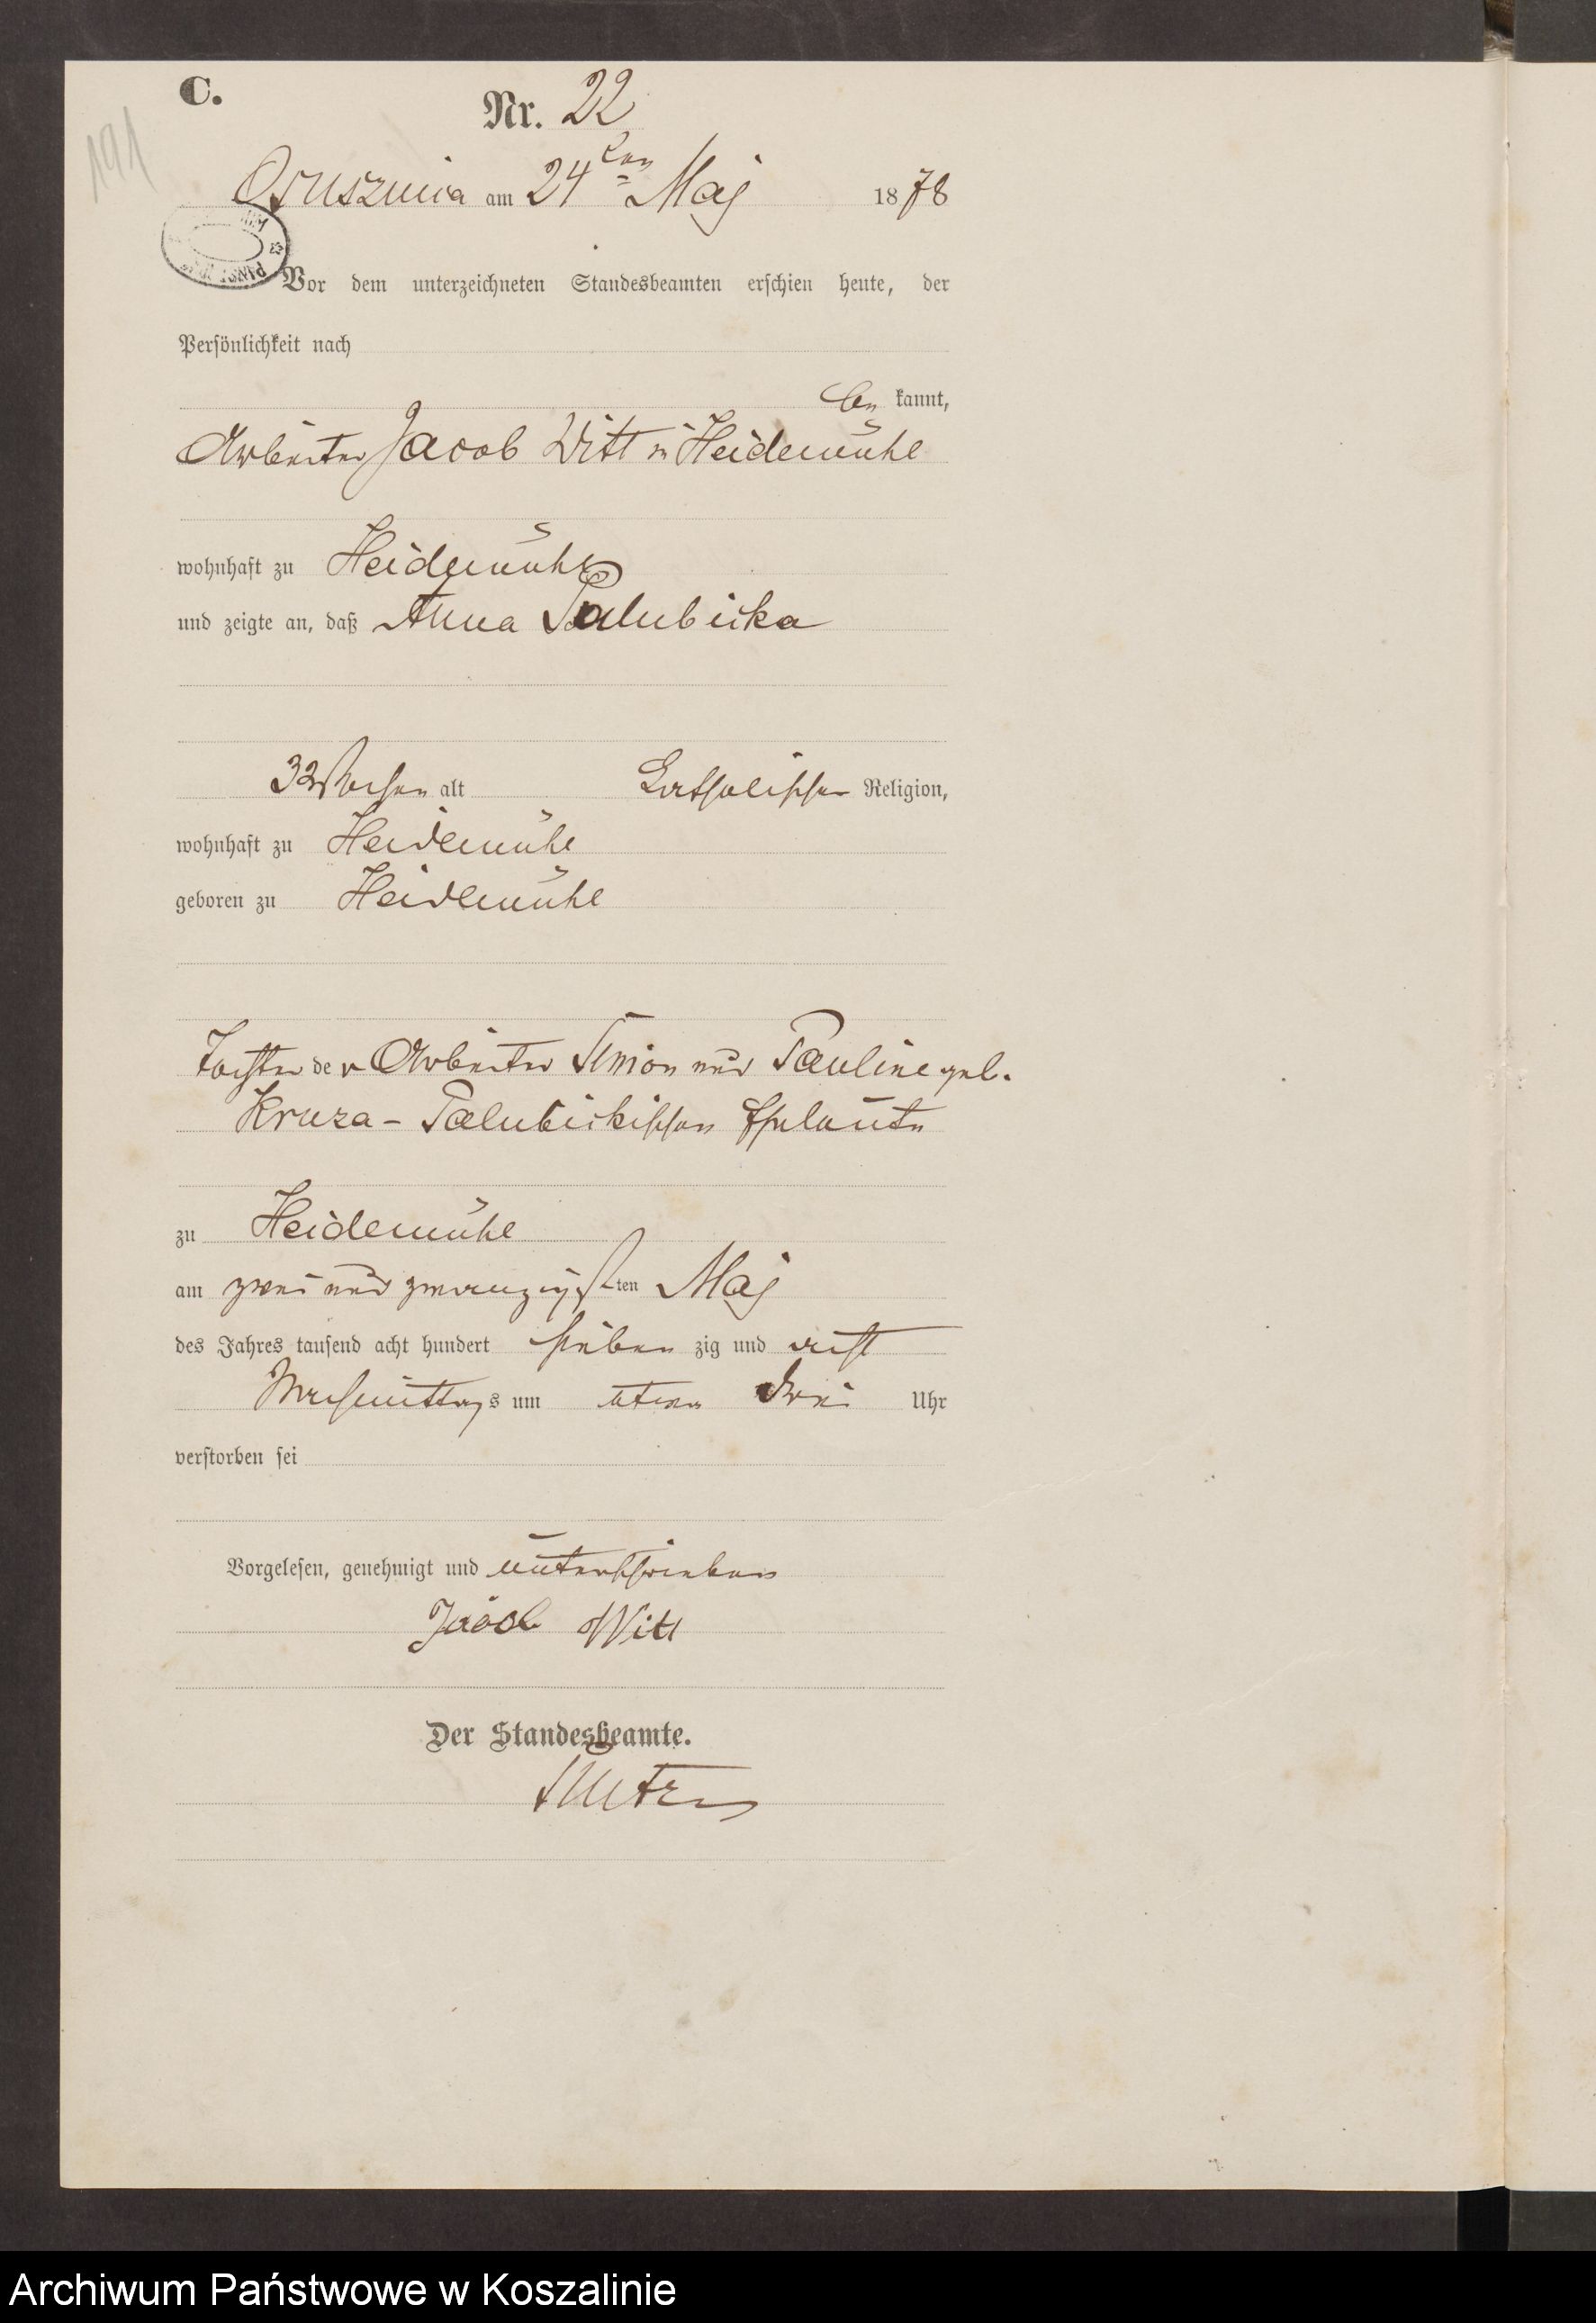 C.
Nr. 22
191
Osusznica am 24ten Maj 1878
Vor dem unterzeichneten Standesbeamten erschien heute, der
Persönlichkeit nach
be kannt,
Arbeiter Jacob Witt in Heidemühl
wohnhaft zu Heidemühl
und zeigte an, daß Anna Palubicka
32 Wochen alt katholischer Religion,
wohnhaft zu Heidemühl
geboren zu Heidemühl
Tochter der Arbeiter Simon und Pauline geb.
Kruza - Palubickischen Eheleute
zu Heidemühl
am zwei und zwanzigsten Maj
des Jahres tausend acht hundert sieben zig und acht
Nachmittags um etwa drei Uhr
verstorben sei
Vorgelesen, genehmigt und unterschrieben
Jacob Witt
Der Standesbeamte.
Archiwum Państwowe w Koszalinie